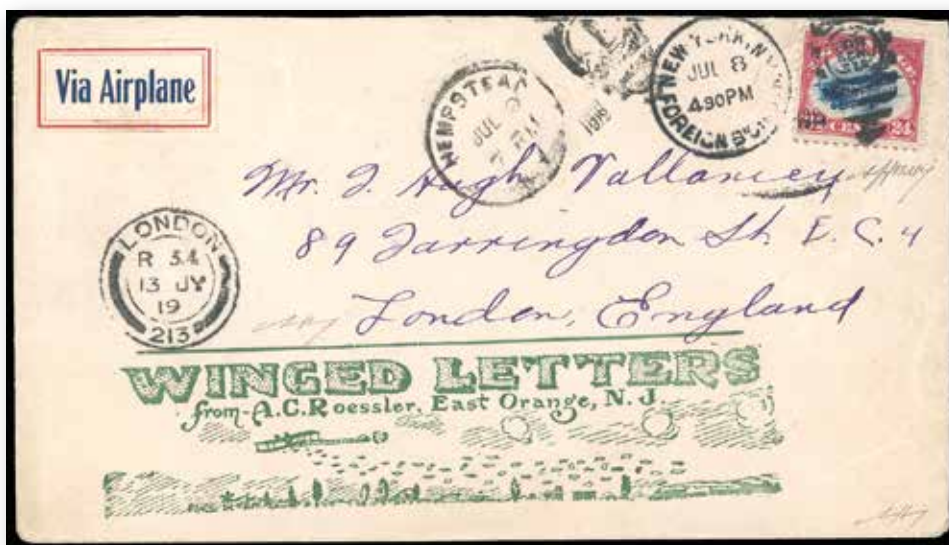 Via Airplane
HEMPSTEAD
JUL
1919
NEW YORK, N.Y.
JUL 8
4 30 PM
FOREIGN
CENTS 24
Mr. J. Hugh Vallancey
89 Farringdon St. E. C. 4
London, England
LONDON
R 34
13 JY
19
213
WINGED LETTERS
from A.C.Roessler, East Orange, N. J.